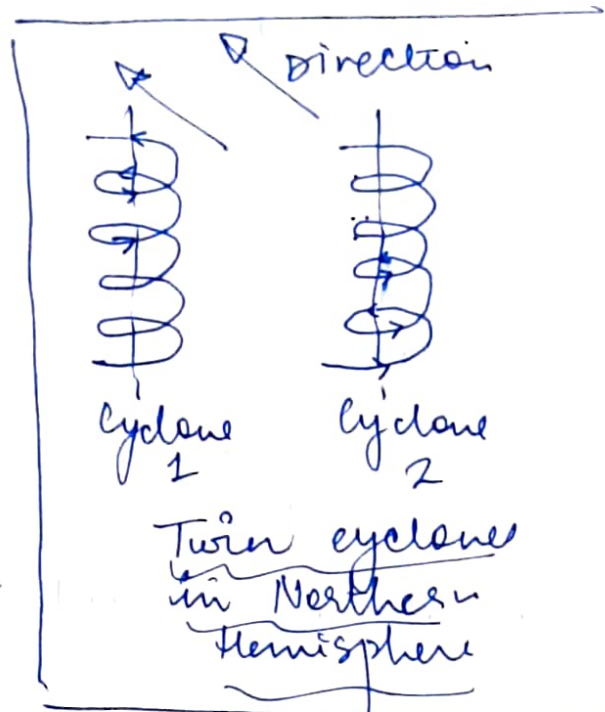 Direction
Cyclone Cyclone
1 2
Twin cyclones
in Northern
Hemisphere